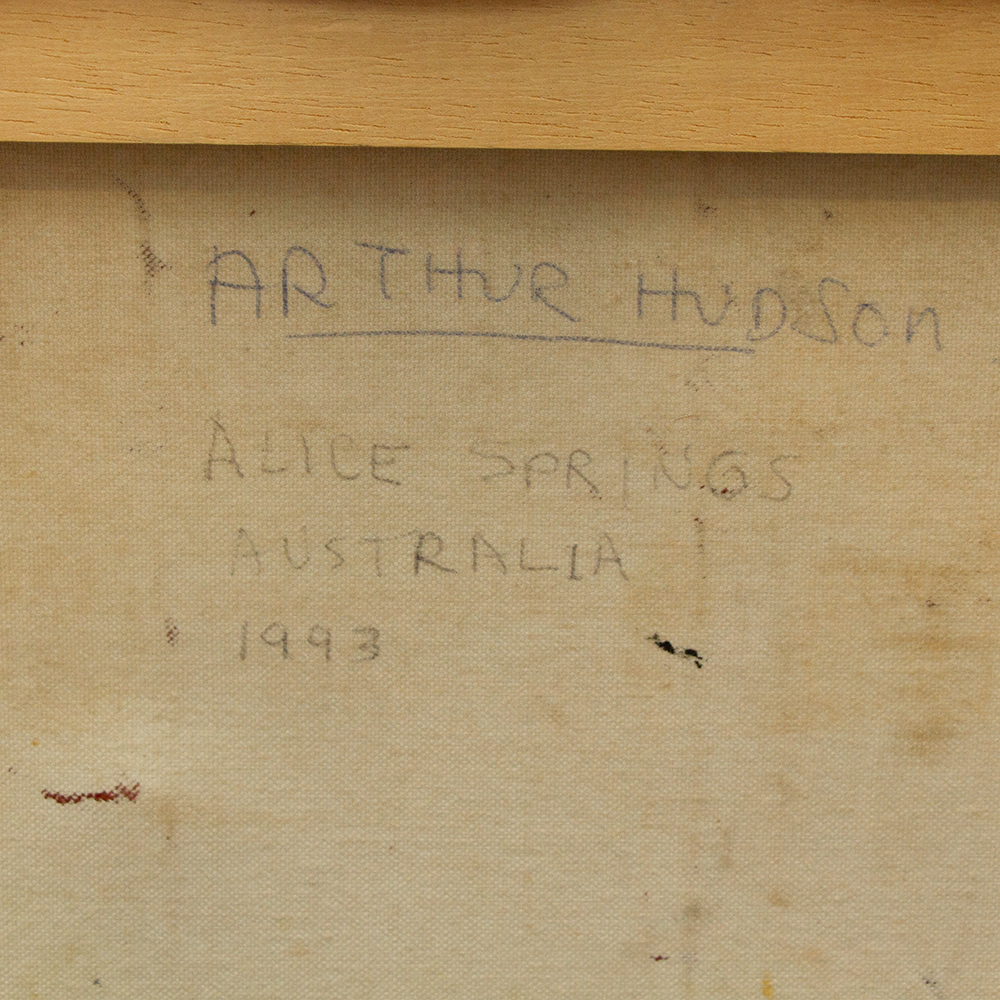 ARTHUR HUDSON
ALICE SPRINGS
AUSTRALIA
1993